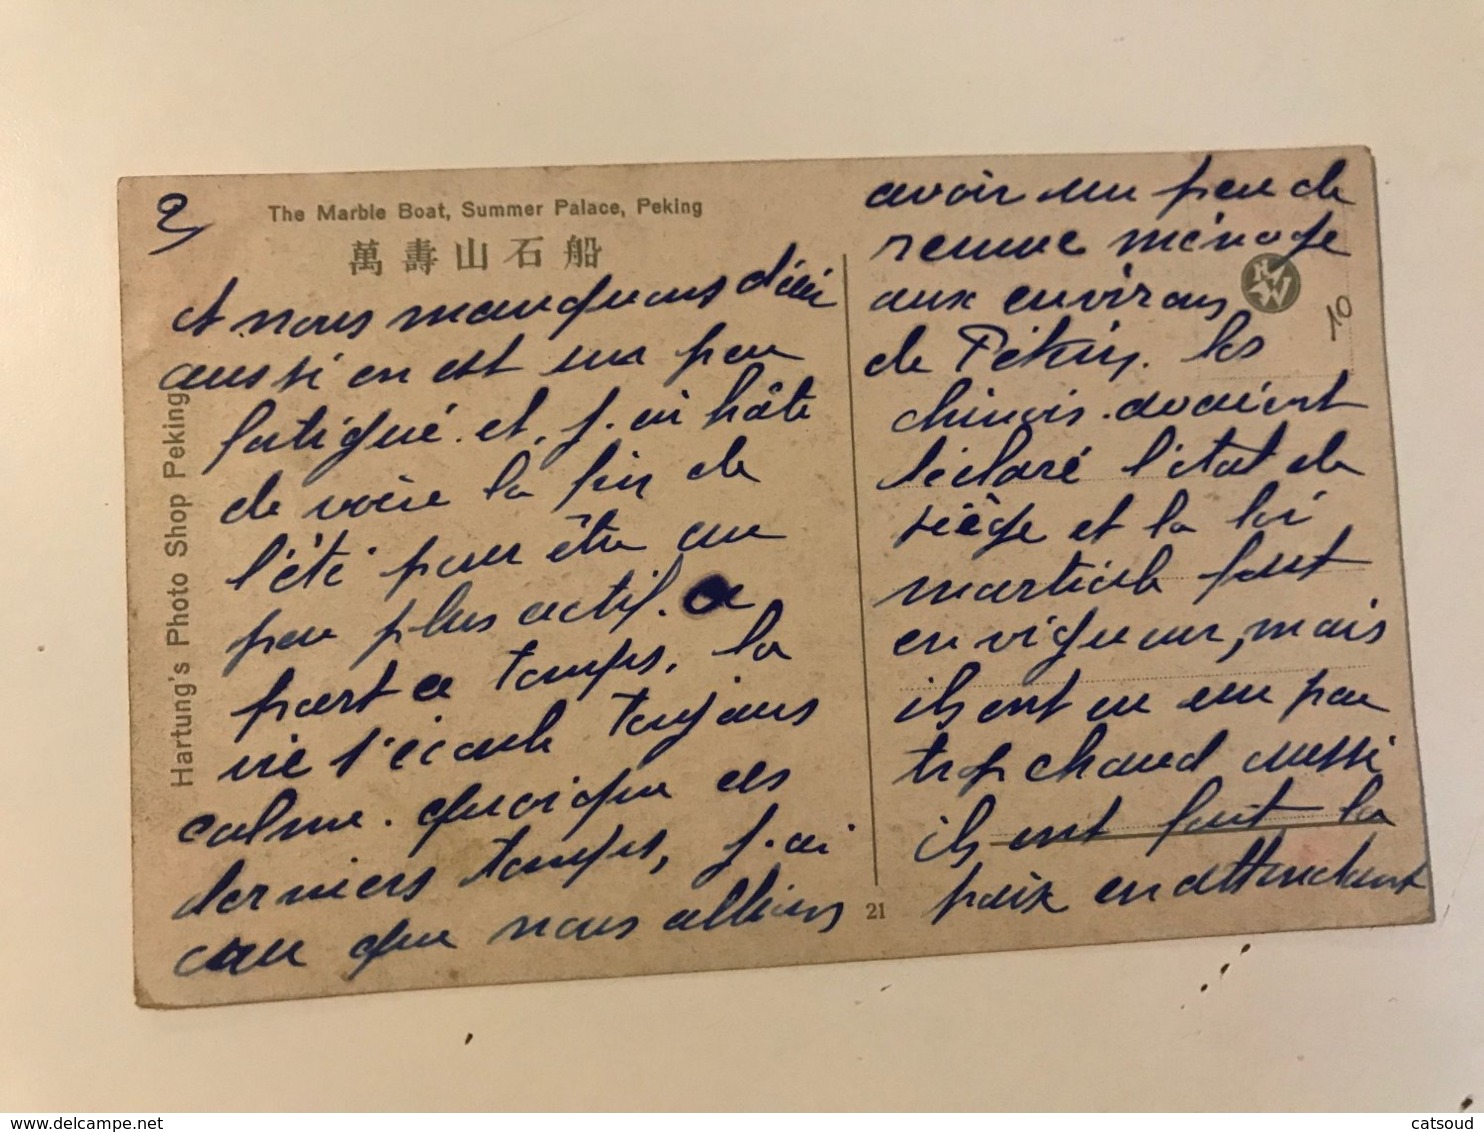 2)
The Marble Boat, Summer Palace, Peking
萬壽山石船
Hartung's Photo Shop Peking
et nous manquons d'air
aussi on est un peu
fatigué. et. j. ai hâte
de voire la fin de
l'été pour être un
peu plus actif. a
part ce temps. la
vie s'écoule toujours
calme. quoique ces
derniers temps, j. ai
cru que nous allions
avoir un peu de
remue ménage
aux environs
de Pékin. les
chinois. avaient
déclaré l'état de
siège et la loi
martiale fout
en vigueur, mais
ils ont eu un peu
trop chaud aussi
ils ont fait la
paix en attendant
21
10
catsoud